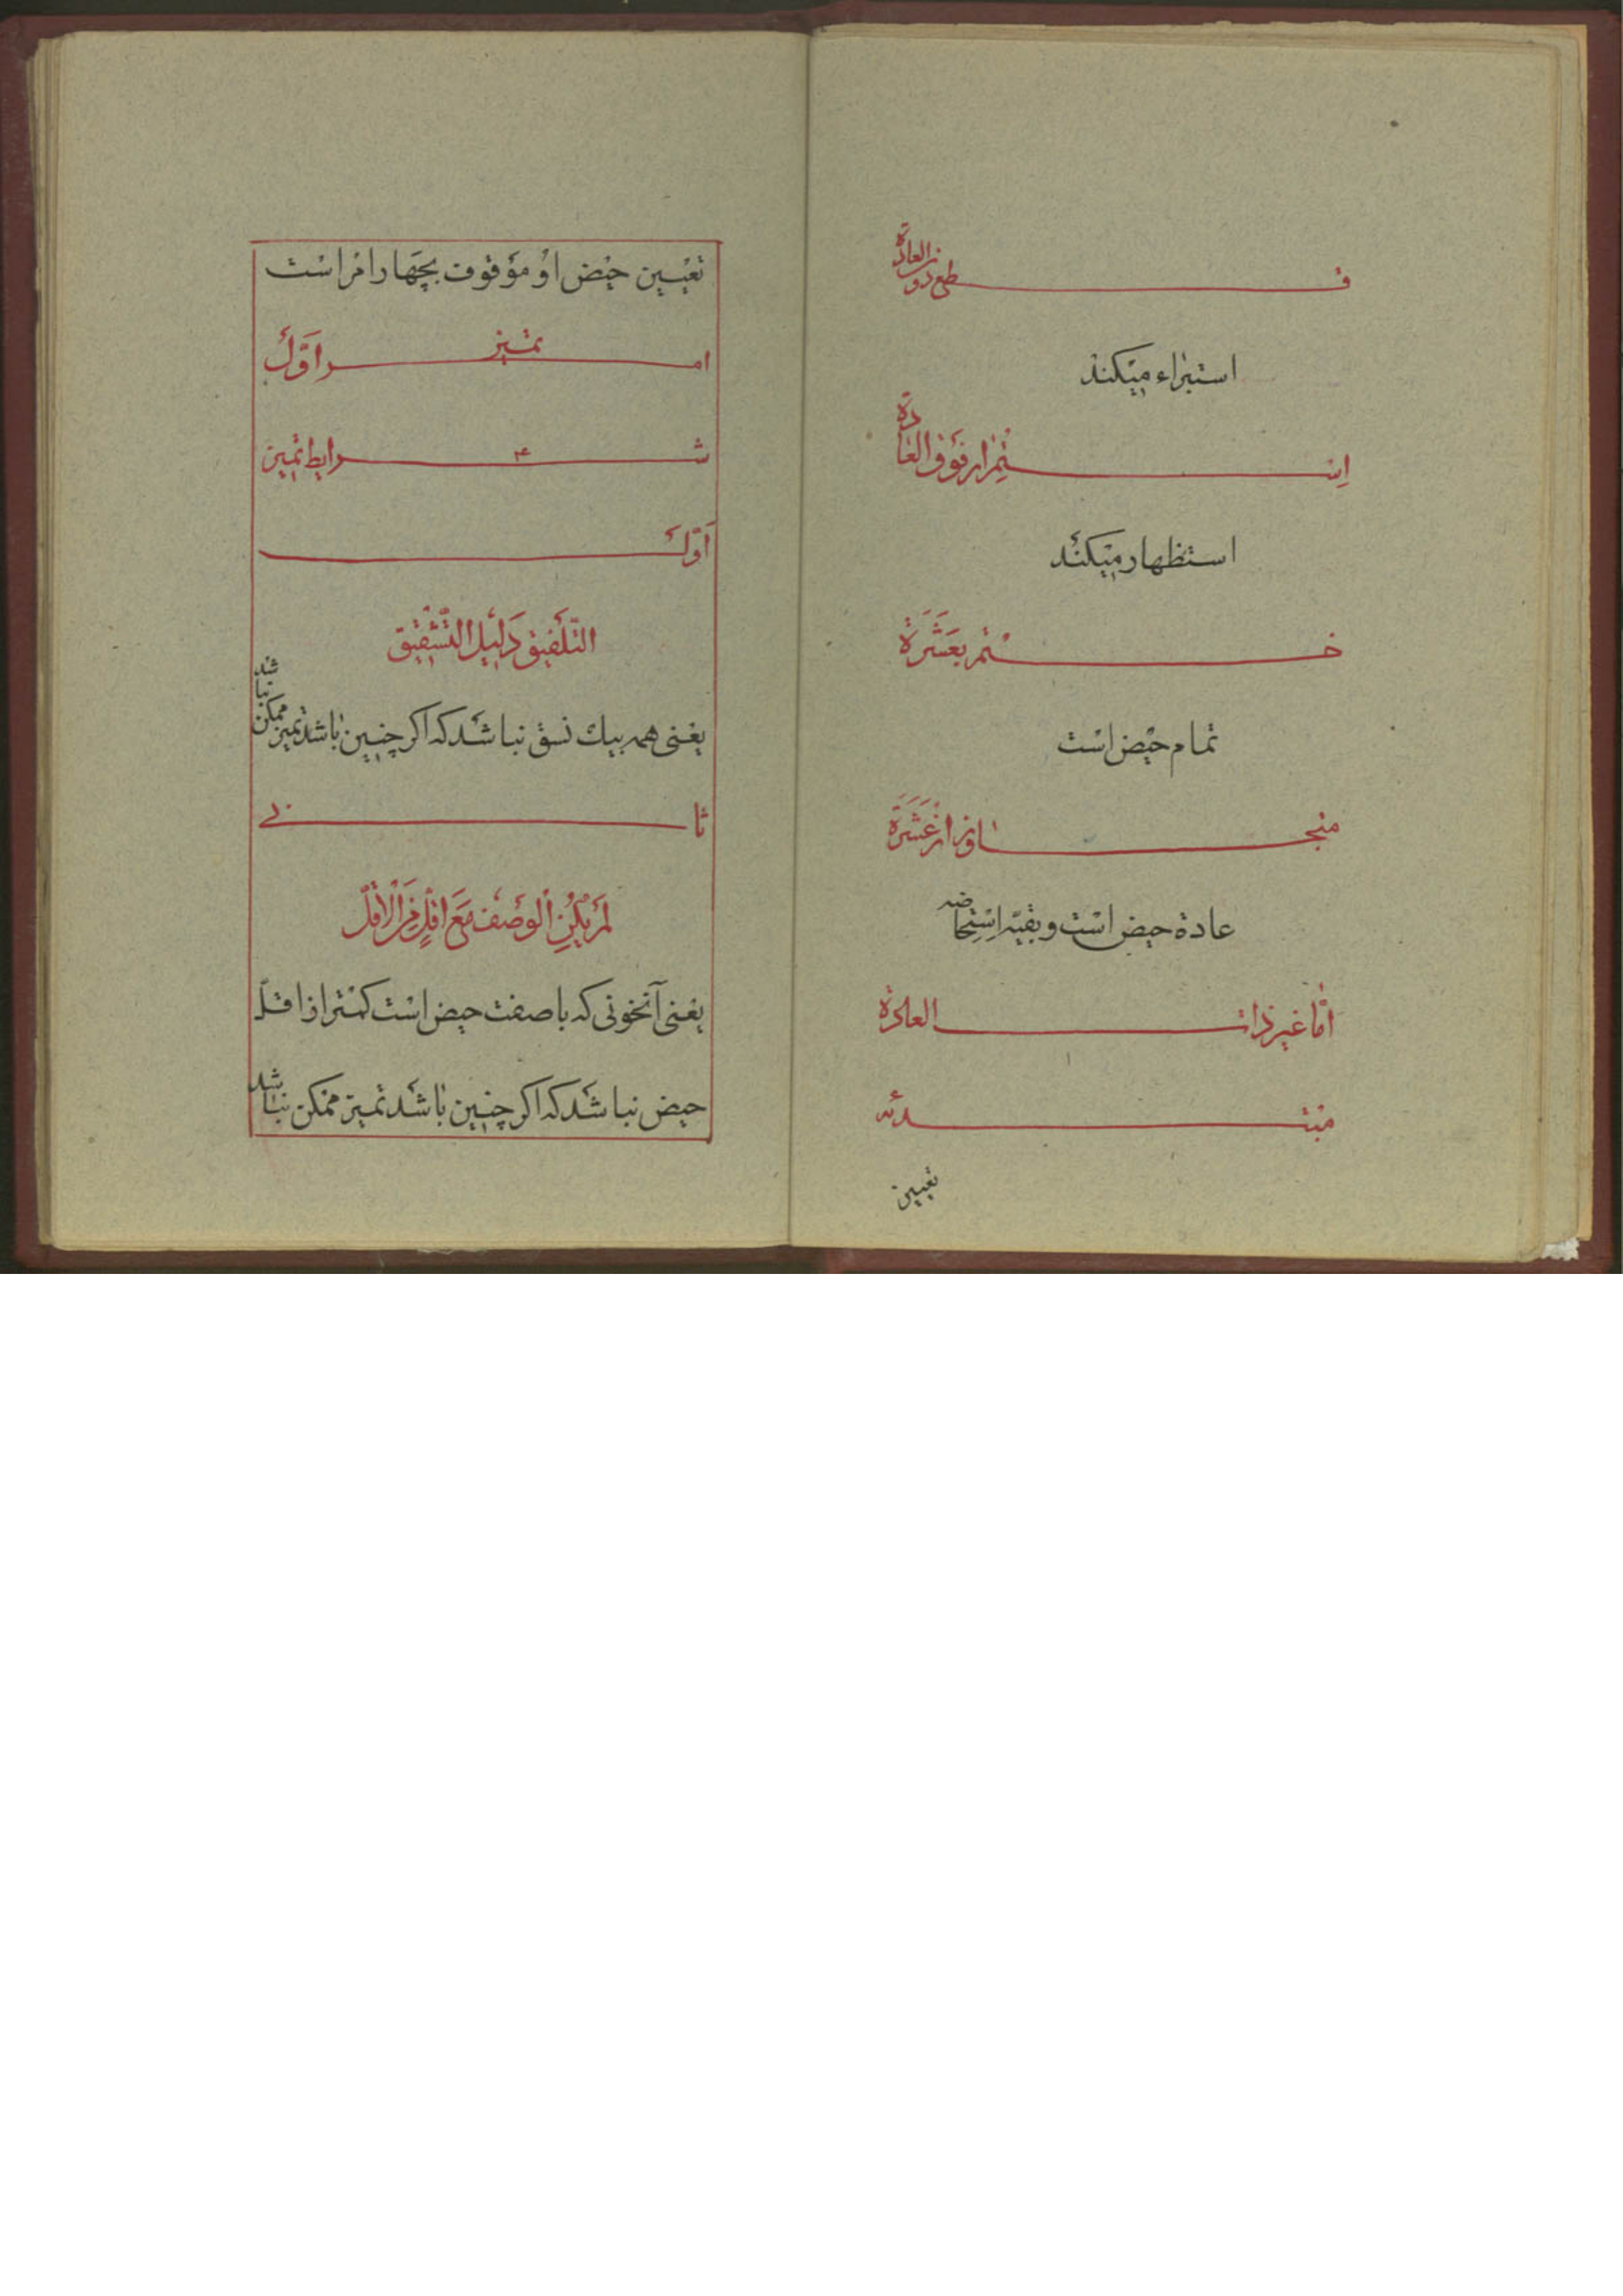 قطع دون العادة
استبراء میکند
استمرار فوق العادة
استظهار میکند
ختم بعشرة
تمام حیض است
متجاوز از عشرة
عادة حیض است و بقیه استحاضه
امّا غیر ذات العادة
مبتدئه
تعیین
تعیین حیض او موقوف بچهار امر است
امر اوّل تمیز
شرایط تمیز ۴
اوّل
التّلفیق دلیل التّشقیق
یعنی همه بیك نسق نباشد که اکر چنین باشد تمیز ممکن نباشد
ثانی
لم یکن الوصف مع اقل من الاقلّ
یعنی آنخونی که با صفت حیض است کمتر از اقلّ
حیض نباشد که اکر چنین باشد تمیز ممکن نباشد